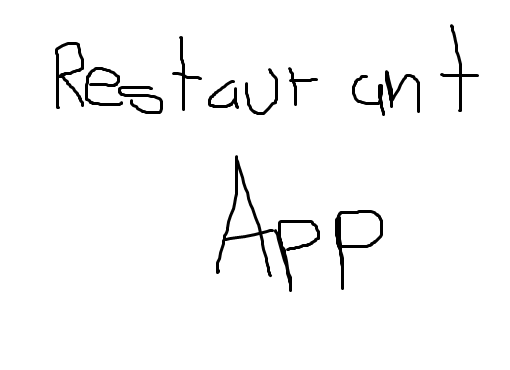 Restaurant
App